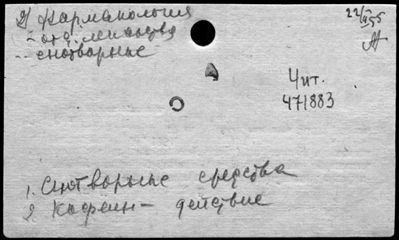 2) Фармакология
2 отд. лекарства
-- снотворные
22/V 55
Чит.
471883
1. Снотворные средства
2. Кофеин — действие